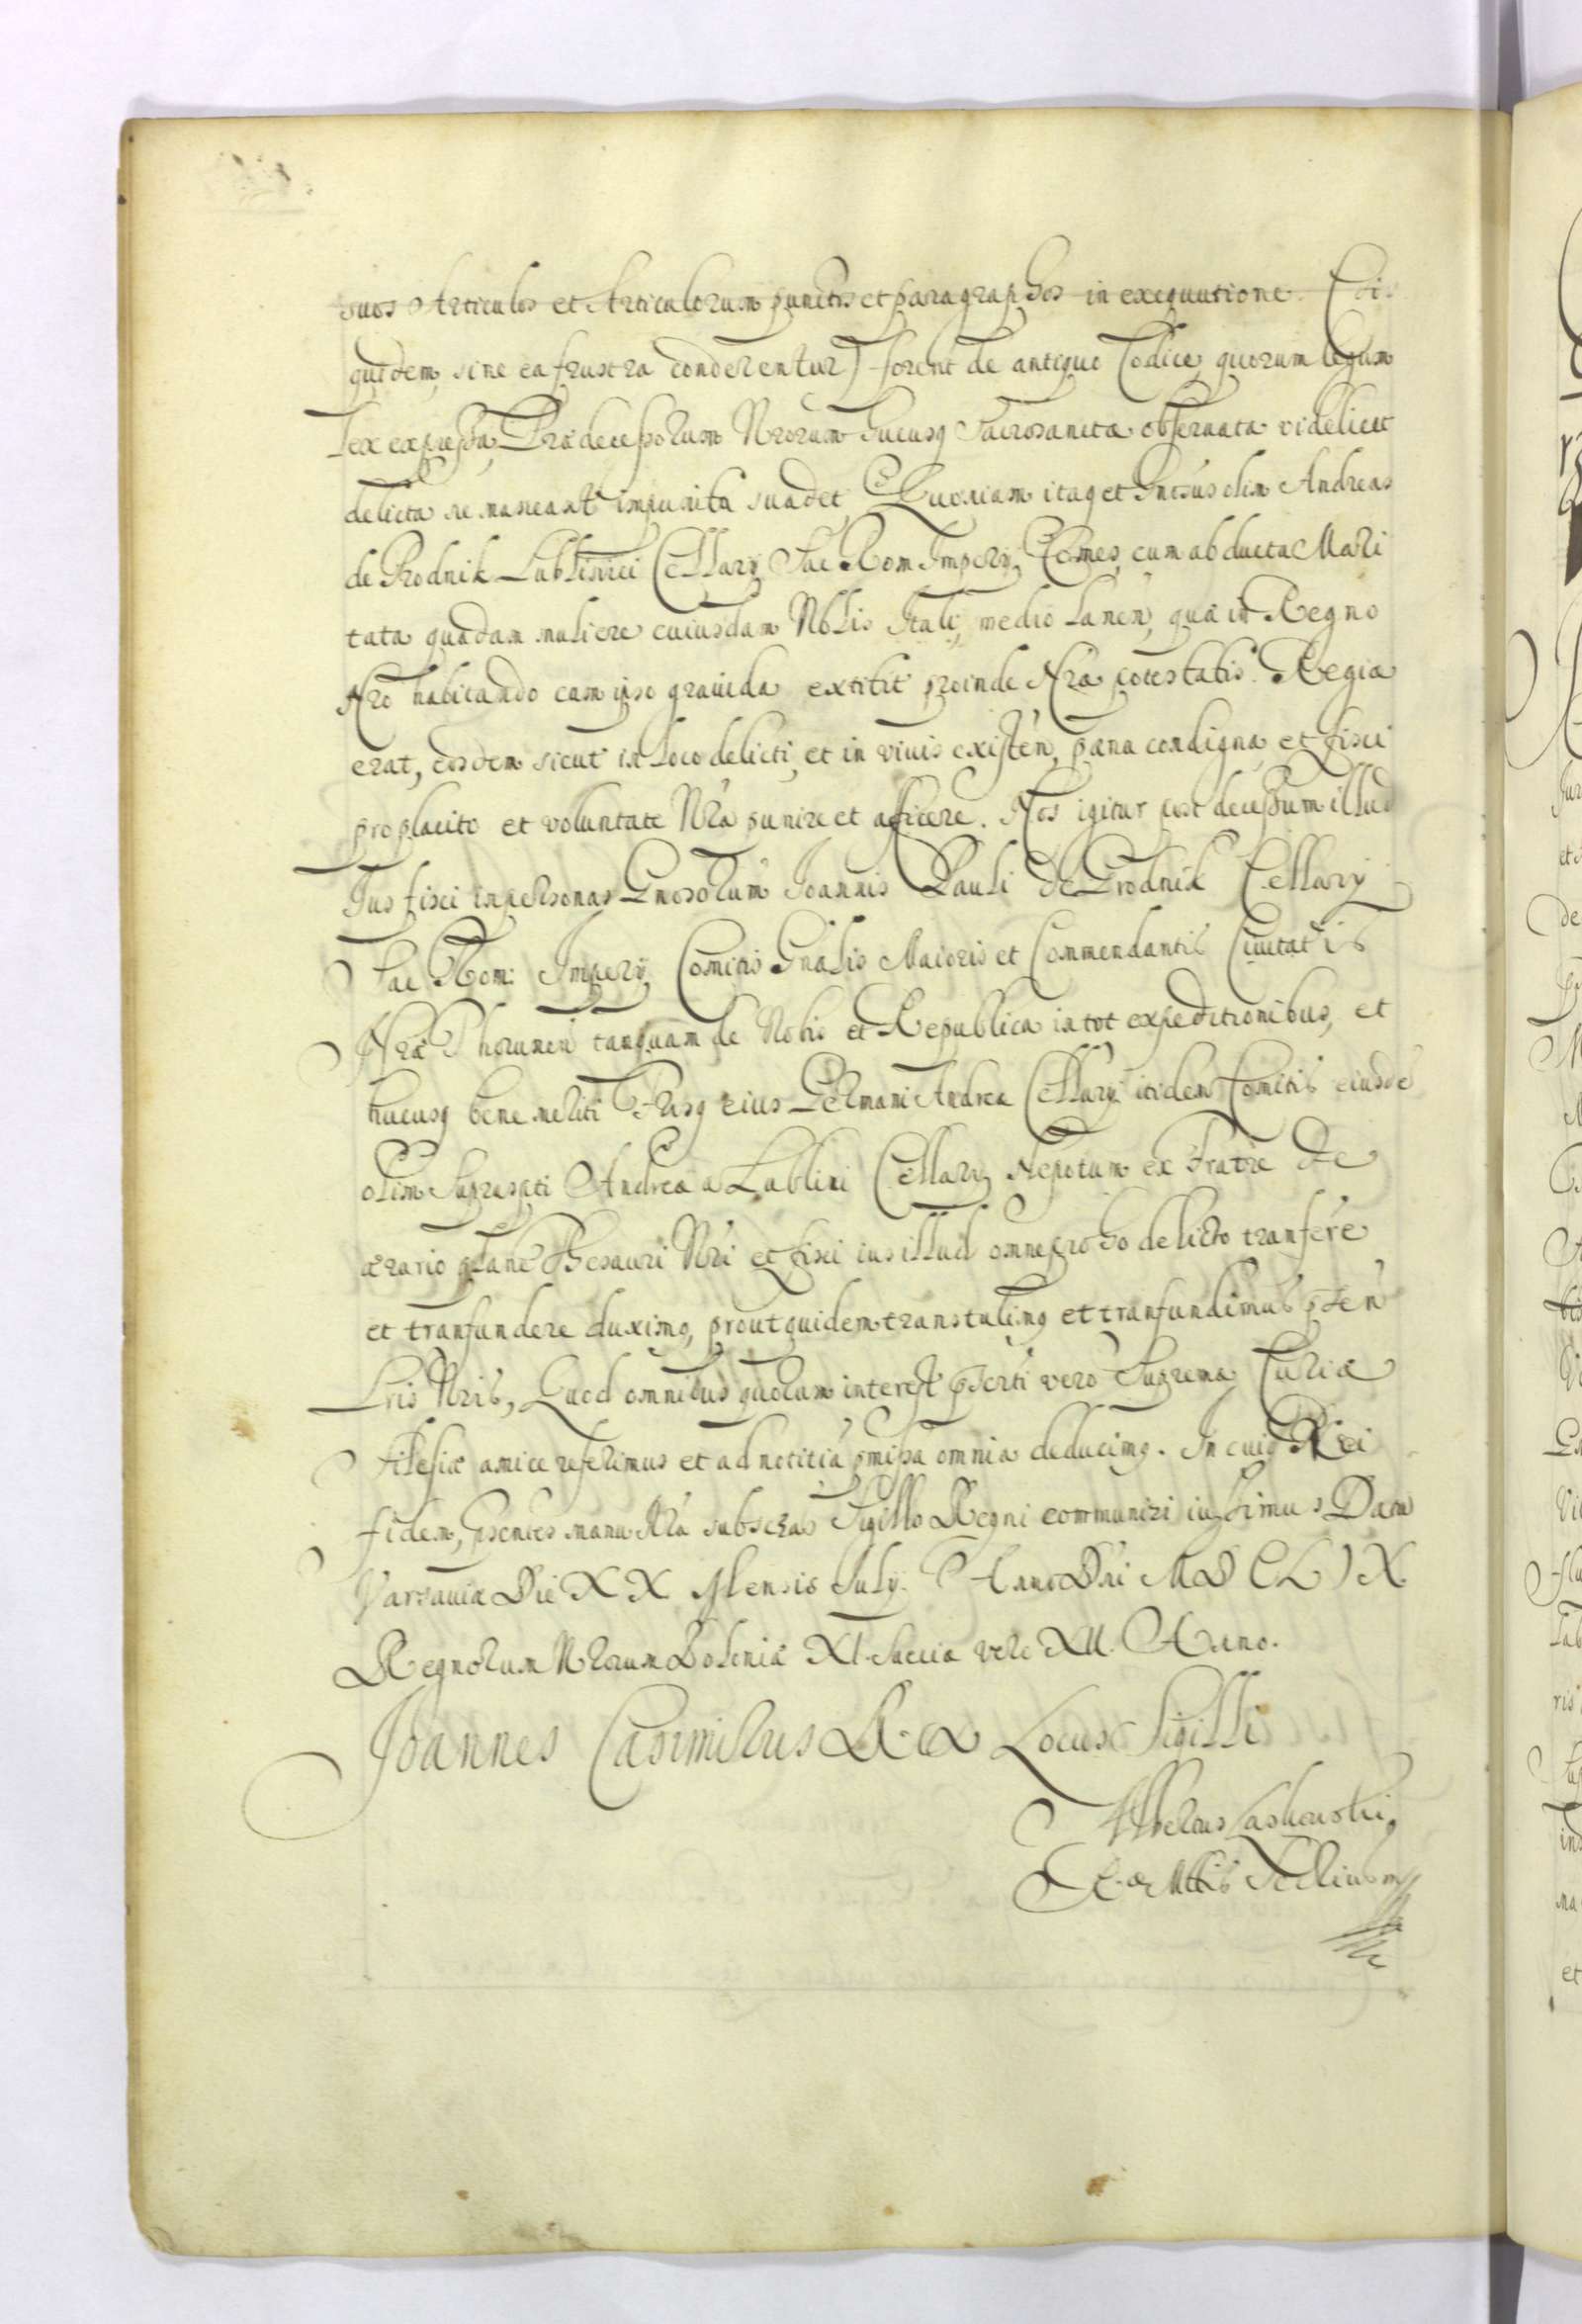 suos Articulos et Articulorum punctis et paragraphos in exequutione (Si
quidem, sine ea frustra conderentur) forent de antiquo Codice quorum legum
Lex expressa, Prædecessorum Nrorum hucusq Sacrosancta observata videlicet
delicta ne maneant impunita suadet, Quoniam itaq et
olim Andreas
de Grodnik Lublinici Cellary Sac Rom Impery Comes, cum abducta Mari
tata quadam muliere cuiusdam Nblis Itali, mediolanen, quæ in Regno
Nro habitando cum ipso gravida extitit proinde Nra potestatis Regia
erat, eosdem sicut in Loco delicti, et in vivis existen, pæna condigna et fisci
pro placito et voluntate Nra punire et afficere. Nos igitur post decessum illud
Jus fisci in personas Gnosorum Joannis Pauli de Grodnik Cellary
Sac Rom: Impery Comitis Gnalis Maioris et Commendantis Civitatis
Nræ Thorunen tanquam de Nobis et Republica in tot expeditionibus, et
hucusq bene meriti Frisq eius Germani Andreæ Cellary itidem Comitis eiusde
olim Suprafati Andreæ a Lublini Cellary Nepotum ex Fratre de
ærario plane Thesauri Nri et fisci ius illud omne pro ho delicto tranfere
et tranfundere duximq, prout quidem transtulimq et tranfundimus pnten
Lris Nris, Quod omnibus quorum interest pserti vero Supremæ Curiæ
Silesiæ amice referimus et ad notitia pmissa omnia deducimq. In cuiq Rei
fidem, psentes manu Nra subscras Sigillo Regni communiri iussimus Datu
Varsavia Die XX Mensis July. Anno Dni MDCLIX
Regnorum Nrorum Poloniæ XI. Sueciæ vero XII. Anno.
Joannes Casimirus Rex Locus Sigilli
Albertus
R. æ Mttis Scrius m